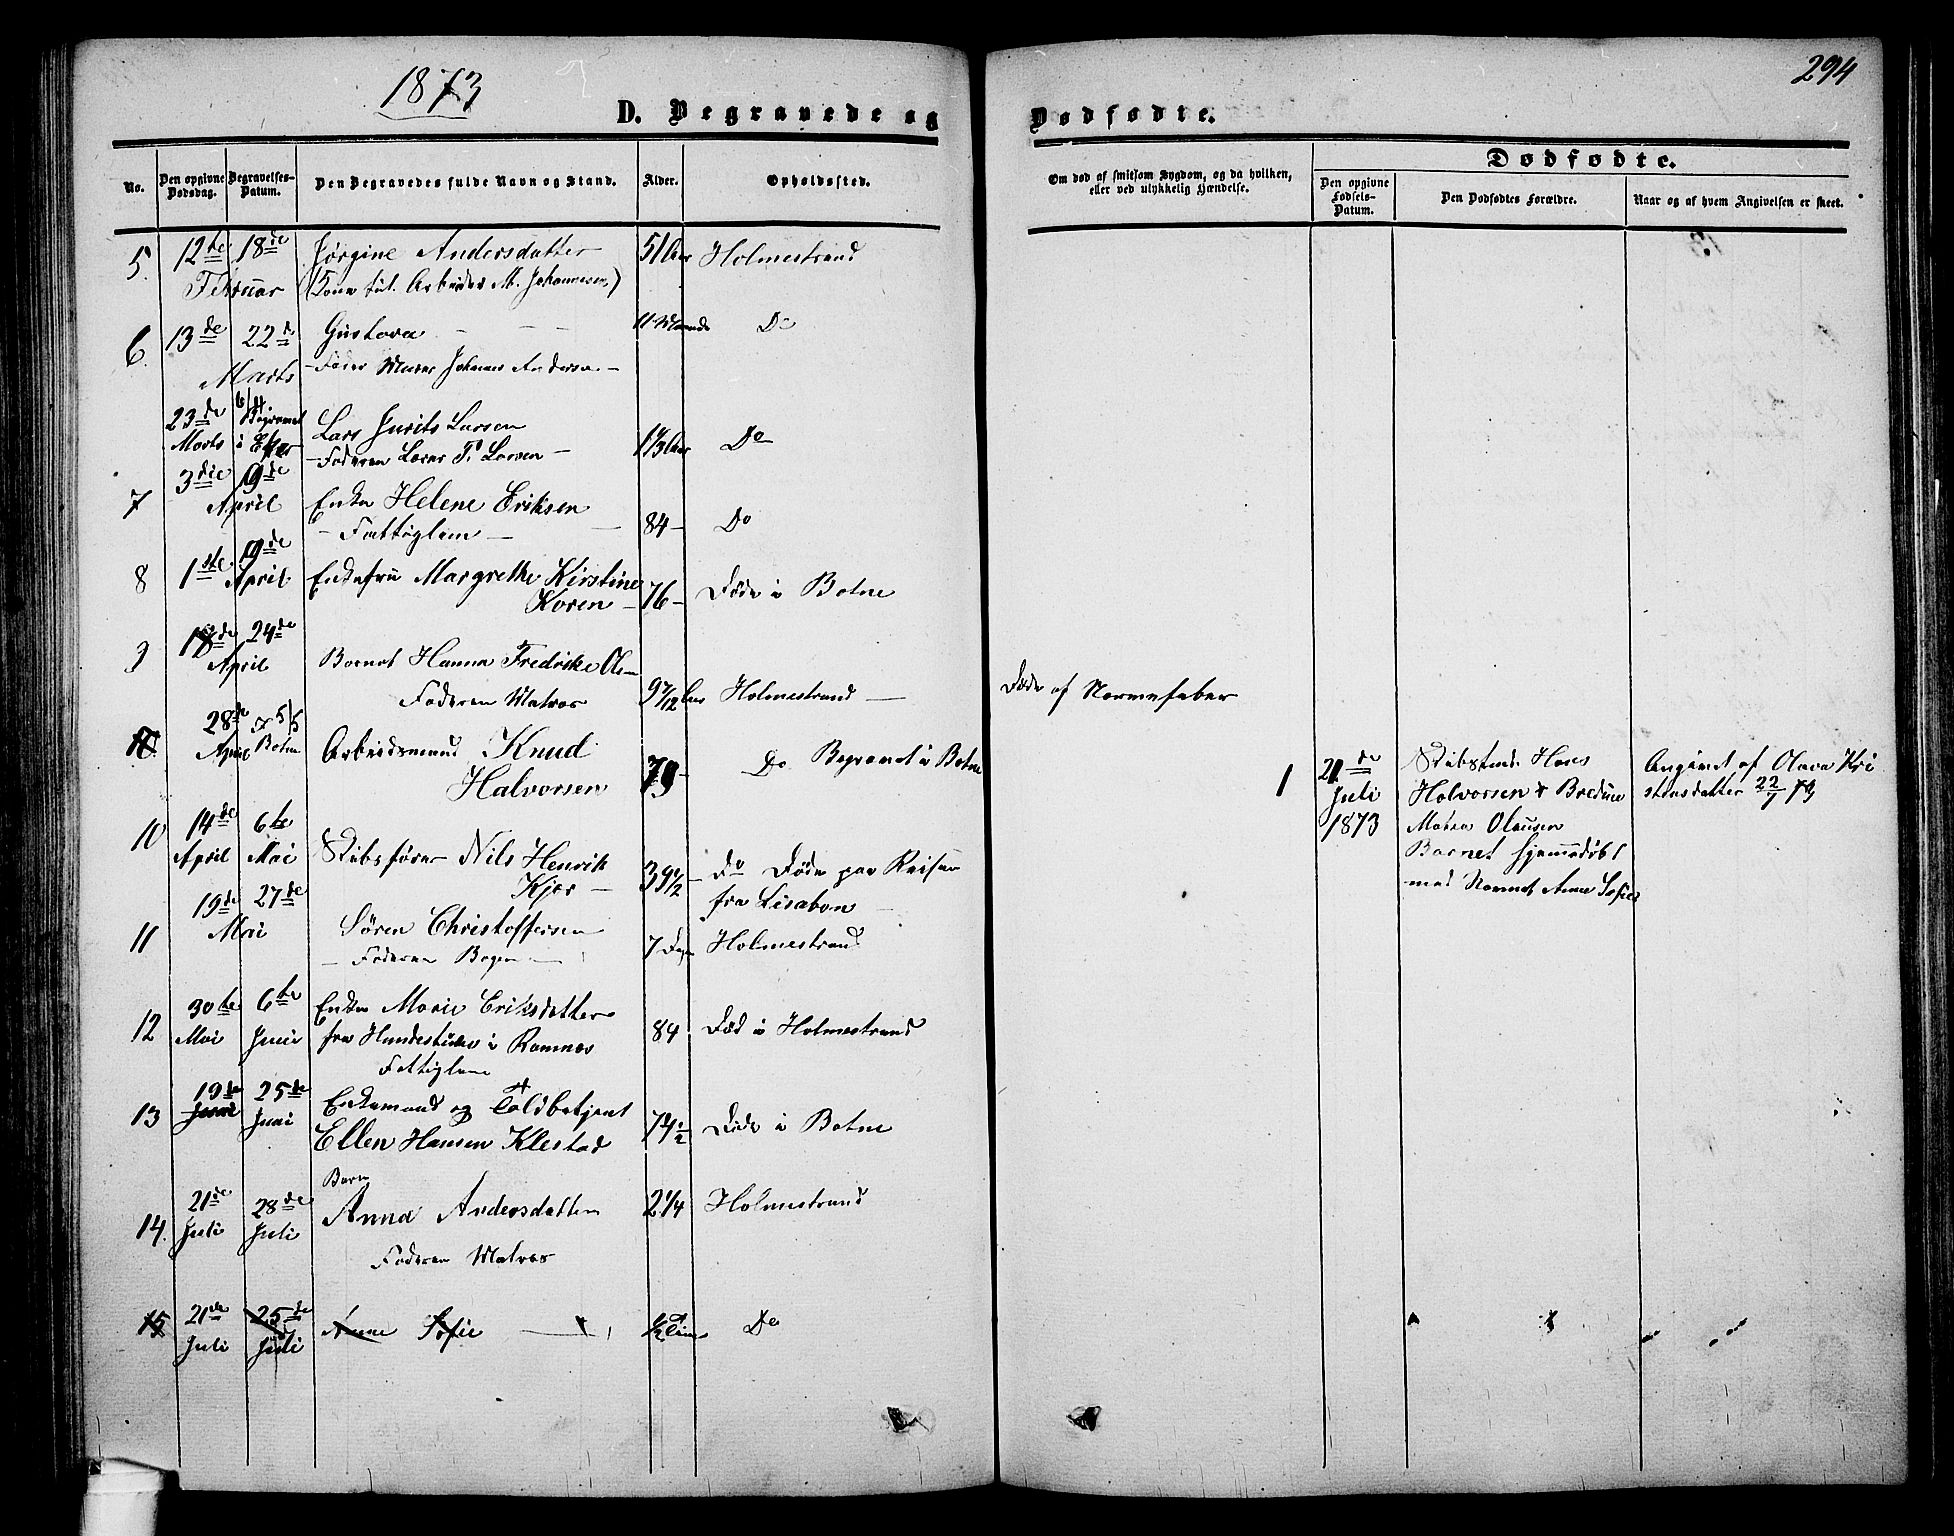 1873
294
D. Begravede og Dødfødte.
Dødfødte.
No.
Den opgivne Dødsdag.
Begravelses-Datum.
Den Begravedes fulde Navn og Stand.
Alder.
Opholdssted.
Om død af smitsom Sygdom, og da hvilken,
eller ved ulykkelig Hændelse.
Den opgivne Fødsels-Datum.
Den Dødfødtes Forældre.
Naar og af hvem Angivelsen er skeet.
5. 12te 18de Jørgine Andersdatter 51 Aar Holmestrand
Februar (Kone til Arbeider M. Johannesen)
6. 13de 22d Gustava - - - 11 Maaned Do
Marts - Fader Murer Johannes Andersen -
23de 6/4 Begravet Lars Lursen 1 1/3 Aar Do
Marts i - Faderen Lærer T. Larsen -
7 3die 9de Enke Helene Eriksen 84 - Do
April - Fattiglem -
8 1ste 19de Enkefru Margrethe Kirstine 76 - Døde i Botne
April Koren -
9 18de 24de Barnet Hanna Fredrike Olsen 9 7/12 Aar Holmestrand - Døde af Nervefeber
April Faderen Matros
10. 28de 5/5 Arbeidsmand Knud 79 - Do Begravet i Botne
April Botne Halvorsen
10 14de 6te Skibsfører Nils Henrik 39 1/2 - Do Døde paa Reisen
April Mai Kjær - fra Lisabon -
11 19de 27de Søren Christoffersen 7 Dage Holmestrand
Mai - Faderen Bager -
12 30te 6te Enke Marie Eriksdatter 84 Død i Holmestrand
Mai Juni fra i Ramnæs
Fattiglem
13 19de 25de Enkemand og Toldbetjent 74 1/2 Døde i Botne
Juni Juni Ellen Hansen Klestad
Barn
14. 21de 28de Anna Andersdatter 2 1/4 Holmestrand
Juli Juli Faderen Matros
15 21de 25de Anne Sofie - 1/2 Time Do
Juli Juli
1 21de Juli 1873
Skibstmd. Hans
Halvorsen &
Maren Olausen
Barnet hjemmedøbt
med Navnet Anne Sofie
Angivet af Olava Kri
stensdatter 22/7 73